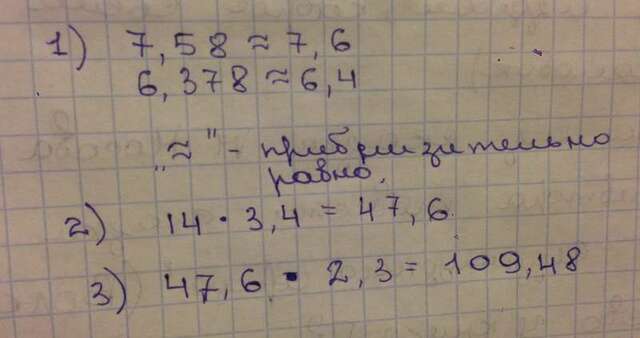 1) 7,58 ≈ 7,6
6,378 ≈ 6,4
„≈" - приблизительно
равно.
2) 14 · 3,4 = 47,6
3) 47,6 · 2,3 = 109,48